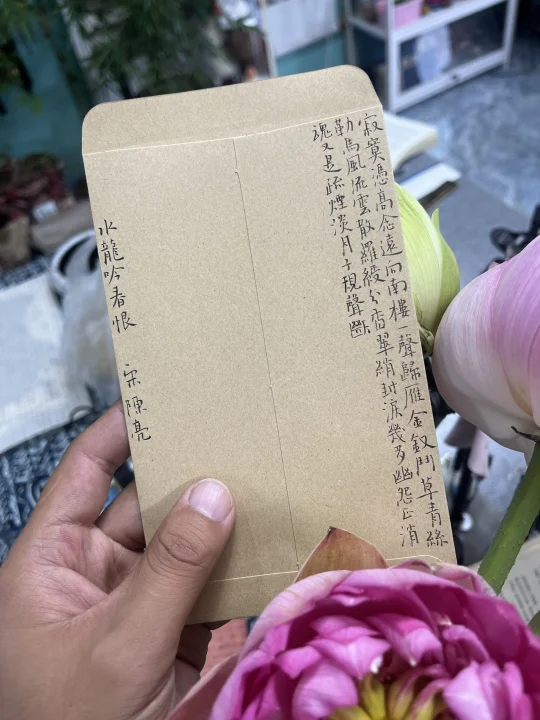 寂寞憑高念遠向南樓一聲歸雁金釵鬥草青絲
勒馬風流雲散羅綬分香翠綃封淚幾多幽怨正消
魂又是疏煙淡月子規聲斷
水龍吟春恨 宋陳亮